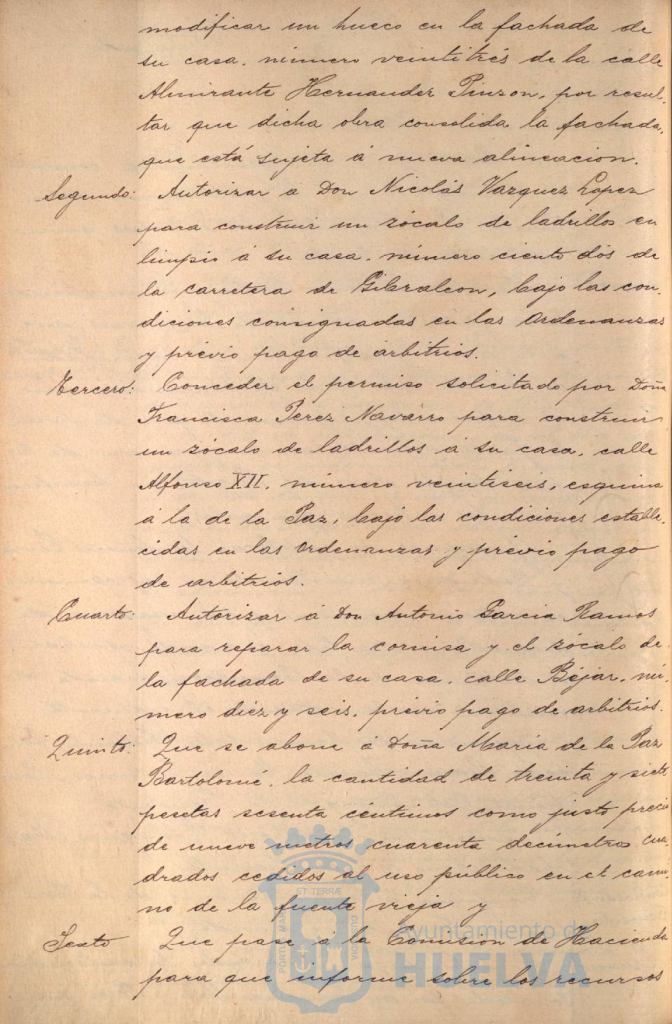 modificar un hueco en la fachada de
su casa, número veintitrés de la calle
Almirante Hernandez Pinzon, por resul-
tar que dicha obra consolida la fachada,
que está sujeta á nueva alineacion.
Segundo: Autorizar a Don Nicolás Vazquez Lopez
para construir un zócalo de ladrillos en
limpio á su casa, número ciento dos de
la carretera de Gibraleon, bajo las con
diciones consignadas en las Ordenanzas
y prévio pago de arbitrios.
Tercero: Conceder el permiso solicitado por Doña
Francisca Perez Navarro para construir
un zócalo de ladrillos á su casa, calle
Alfonso XII, número veintiseis, esquina
á la de la Paz, bajo las condiciones estable-
cidas en las Ordenanzas y prévio pago
de arbitrios.
Cuarto: Autorizar á Don Antonio Garcia Ramos
para reparar la cornisa y el zócalo de
la fachada de su casa, calle Béjar, nú-
mero diéz y seis, prévio pago de arbitrios.
Quinto: Que se abone á Doña Maria de la Paz
Bartolomé, la cantidad de treinta y siete
pesetas sesenta céntimos como justo precio
de nueve metros cuarenta decímetros cua
drados cedidos al uso público en el cami
no de la fuente vieja y
Sexto Que pase á la Comisión de Hacienda
para que informe sobre los recursos
ET TERRÆ
PORTUS MARIS
CUSTODIA
Ayuntamiento de
HUELVA